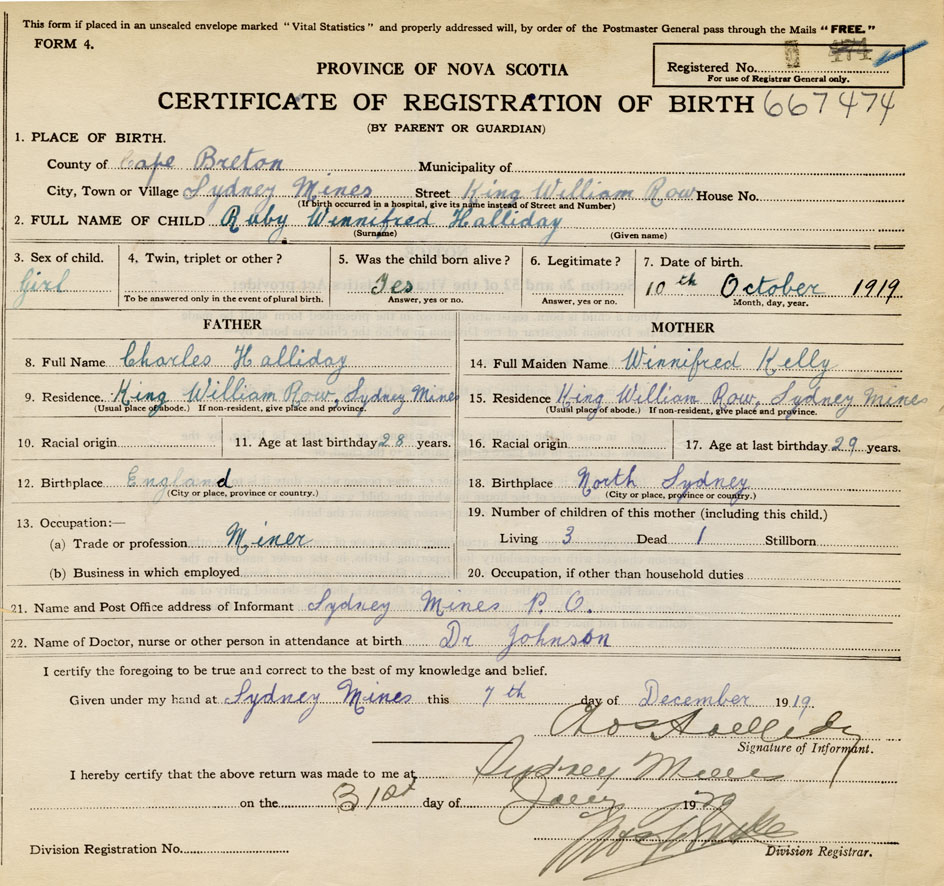 This form if placed in an unsealed envelope marked "Vital Statistics" and properly addressed will, by order of the Postmaster General pass through the Mails "FREE."
FORM 4.
Registered No. 474
For use of Registrar General only.
PROVINCE OF NOVA SCOTIA
CERTIFICATE OF REGISTRATION OF BIRTH 667474
(BY PARENT OR GUARDIAN)
1. PLACE OF BIRTH.
County of Cape Breton Municipality of
City, Town or Village Sydney Mines Street King William Row House No.
(If birth occurred in a hospital, give its name instead of Street and Number)
2. FULL NAME OF CHILD Ruby Winnifred Halliday
(Surname) (Given name)
3. Sex of child. 4. Twin, triplet or other ? 5. Was the child born alive ? 6. Legitimate ? 7. Date of birth.
Girl Yes 10th October 1919
To be answered only in the event of plural birth. Answer, yes or no. Answer, yes or no. Month, day, year.
FATHER
8. Full Name Charles Halliday
9. Residence. King William Row, Sydney Mines
(Usual place of abode.) If non-resident, give place and province.
10. Racial origin 11. Age at last birthday 28 years.
12. Birthplace England
(City or place, province or country.)
13. Occupation:—
(a) Trade or profession Miner
(b) Business in which employed
MOTHER
14. Full Maiden Name Winnifred Kelly
15. Residence King William Row, Sydney Mines
(Usual place of abode.) If non-resident, give place and province.
16. Racial origin 17. Age at last birthday 29 years.
18. Birthplace North Sydney
(City or place, province or country.)
19. Number of children of this mother (including this child.)
Living 3 Dead 1 Stillborn
20. Occupation, if other than household duties
21. Name and Post Office address of Informant Sydney Mines P. O.
22. Name of Doctor, nurse or other person in attendance at birth Dr Johnson
I certify the foregoing to be true and correct to the best of my knowledge and belief.
Given under my hand at Sydney Mines this 7th day of December 1919.
Chas Halliday
Signature of Informant.
I hereby certify that the above return was made to me at Sydney Mines
on the 31st day of 19
Division Registration No. Division Registrar.